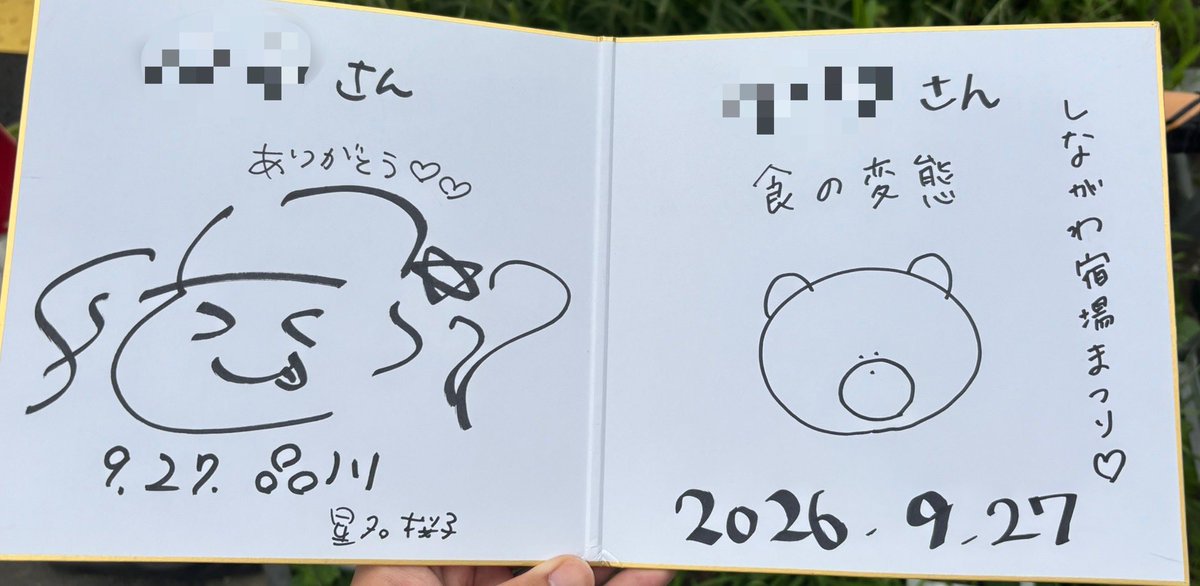 さん
ありがとう♡♡
9.27. 品川
さん
食の変態
しながわ宿場まつり♡
2026.9.27